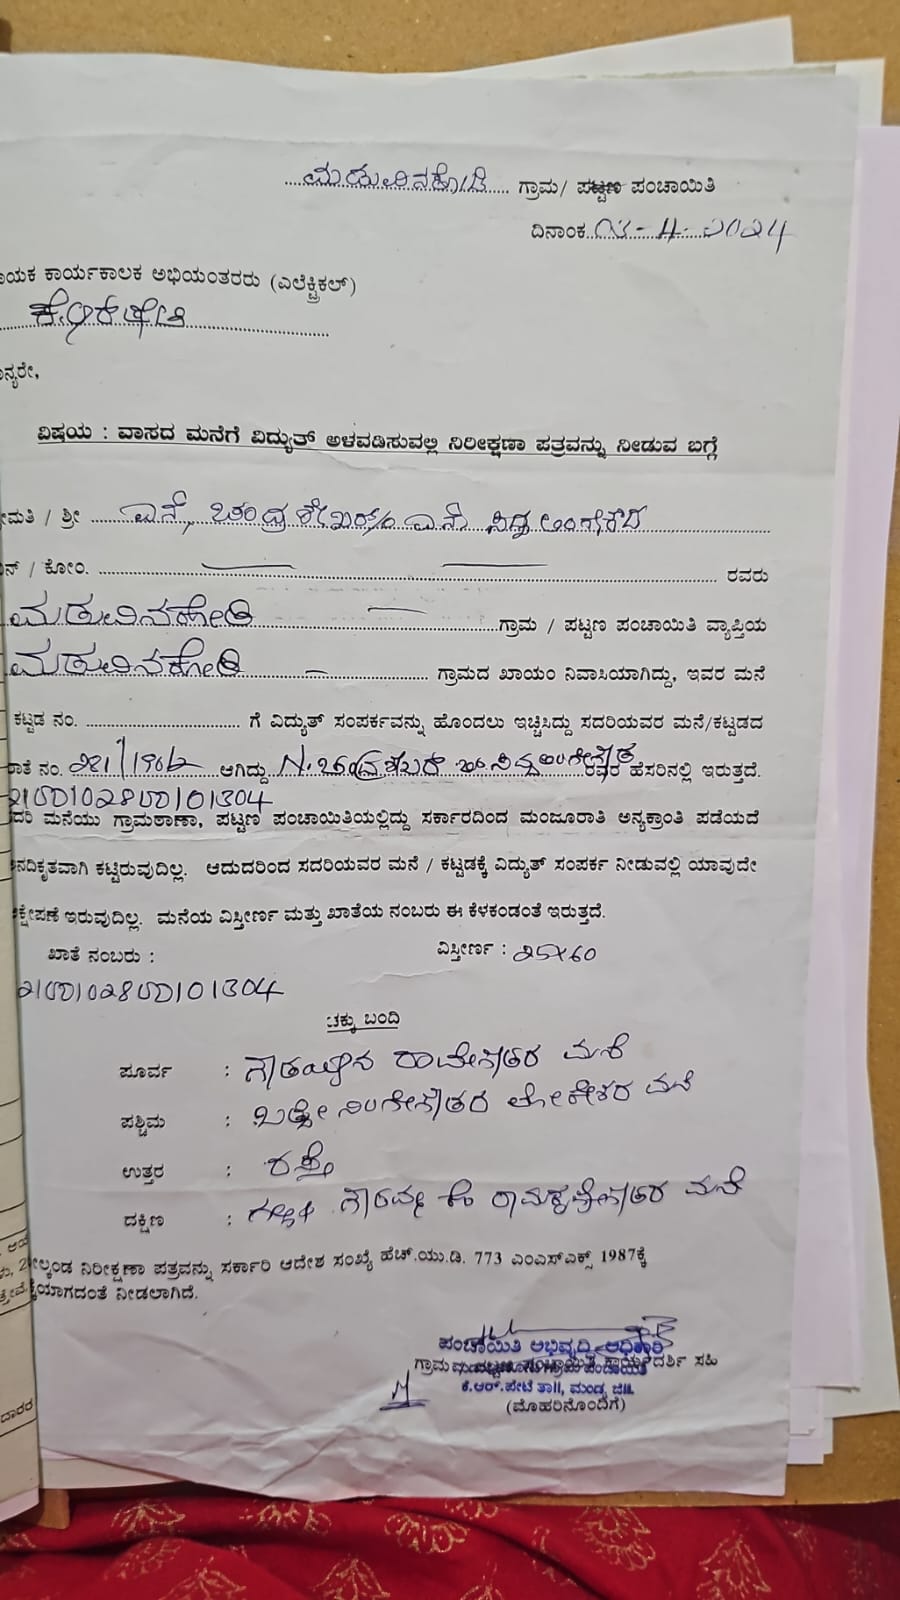 ಮಡುವಿನಕೋಡಿ ಗ್ರಾಮ/ ಪಟ್ಟಣ ಪಂಚಾಯಿತಿ
ದಿನಾಂಕ -4-2024
ಾಯಕ ಕಾರ್ಯಕಾಲಕ ಅಭಿಯಂತರರು (ಎಲೆಕ್ಟ್ರಿಕಲ್)
ಾನ್ಯರೇ,
ವಿಷಯ : ವಾಸದ ಮನೆಗೆ ವಿದ್ಯುತ್ ಅಳವಡಿಸುವಲ್ಲಿ ನಿರೀಕ್ಷಣಾ ಪತ್ರವನ್ನು ನೀಡುವ ಬಗ್ಗೆ
ೀಮತಿ / ಶ್ರೀ ಎನ್, ಚಂದ್ರಶೇಖರ್
ನ್ / ಕೋಂ. ರವರು
ಮಡುವಿನಕೋಡಿ ಗ್ರಾಮ / ಪಟ್ಟಣ ಪಂಚಾಯಿತಿ ವ್ಯಾಪ್ತಿಯ
ಮಡುವಿನಕೋಡಿ ಗ್ರಾಮದ ಖಾಯಂ ನಿವಾಸಿಯಾಗಿದ್ದು, ಇವರ ಮನೆ
ಕಟ್ಟಡ ನಂ. ಗೆ ವಿದ್ಯುತ್ ಸಂಪರ್ಕವನ್ನು ಹೊಂದಲು ಇಚ್ಚಿಸಿದ್ದು ಸದರಿಯವರ ಮನೆ/ಕಟ್ಟಡದ
ಾತೆ ನಂ. 281/190/2 ಆಗಿದ್ದು N. ಚಂದ್ರಶೇಖರ್ ರವರ ಹೆಸರಿನಲ್ಲಿ ಇರುತ್ತದೆ.
ದರಿ ಮನೆಯು ಗ್ರಾಮಠಾಣಾ, ಪಟ್ಟಣ ಪಂಚಾಯಿತಿಯಲ್ಲಿದ್ದು ಸರ್ಕಾರದಿಂದ ಮಂಜೂರಾತಿ ಅನ್ಯಕ್ರಾಂತಿ ಪಡೆಯದೆ
ನದಿಕೃತವಾಗಿ ಕಟ್ಟಿರುವುದಿಲ್ಲ. ಆದುದರಿಂದ ಸದರಿಯವರ ಮನೆ / ಕಟ್ಟಡಕ್ಕೆ ವಿದ್ಯುತ್ ಸಂಪರ್ಕ ನೀಡುವಲ್ಲಿ ಯಾವುದೇ
ಕ್ಷೇಪಣೆ ಇರುವುದಿಲ್ಲ. ಮನೆಯ ವಿಸ್ತೀರ್ಣ ಮತ್ತು ಖಾತೆಯ ನಂಬರು ಈ ಕೆಳಕಂಡಂತೆ ಇರುತ್ತದೆ.
ಖಾತೆ ನಂಬರು : ವಿಸ್ತೀರ್ಣ : 25×60
ಚಕ್ಕು ಬಂದಿ
ಪೂರ್ವ : ರಾಮೇಗೌಡರ ಮನೆ
ಪಶ್ಚಿಮ : ನಿಂಗೇಗೌಡರ ಲೋಕೇಶರ ಮನೆ
ಉತ್ತರ : ರಸ್ತೆ
ದಕ್ಷಿಣ : ಗೌರಮ್ಮ ಕೋ ರಾಮಕೃಷ್ಣೇಗೌಡರ ಮನೆ
ೇಲ್ಕಂಡ ನಿರೀಕ್ಷಣಾ ಪತ್ರವನ್ನು ಸರ್ಕಾರಿ ಆದೇಶ ಸಂಖ್ಯೆ ಹೆಚ್.ಯು.ಡಿ. 773 ಎಂಎಸ್ಎಕ್ಸ್ 1987ಕ್ಕೆ
ಯಾಗದಂತೆ ನೀಡಲಾಗಿದೆ.
ಪಂಚಾಯಿತಿ ಅಭಿವೃದ್ಧಿ ಅಧಿಕಾರಿ
ಗ್ರಾಮ ಪಟ್ಟಣ ಪಂಚಾಯಿತಿ ಕಾರ್ಯದರ್ಶಿ ಸಹಿ
ಕೆ.ಆರ್.ಪೇಟೆ ತಾ||, ಮಂಡ್ಯ ಜಿ||.
(ಮೊಹರಿನೊಂದಿಗೆ)